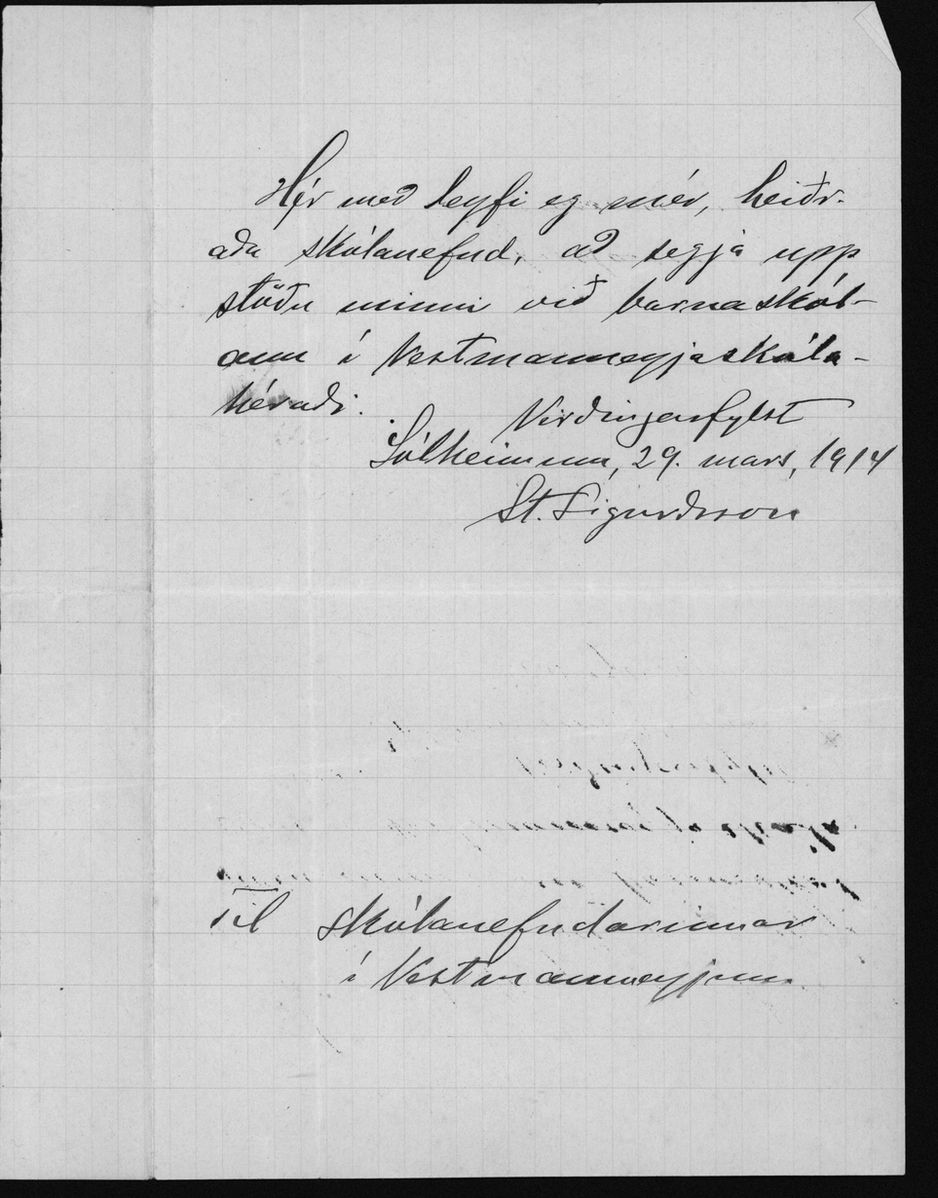 Hér með leyfi eg mér, heiðr-
aða skólanefnd, að segja upp
stöðu minni við barnaskól-
ann í Vestmanneyjaskóla-
héraði.
Virðingarfylst
Sólheimum, 29. mars, 1914
St. Sigurðsson
Til skólanefndarinnar
í Vestmanneyjum